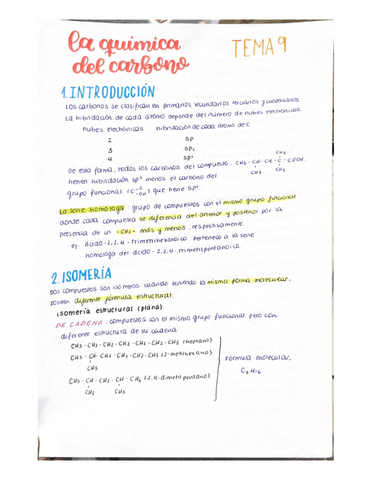 la química
del carbono
TEMA 9
1. INTRODUCCIÓN
Los carbonos se clasifican en primarios, secundarios, terciarios y cuaternarios.
La hibridación de cada átomo depende del número de nubes electrónicas.
Nubes electrónicas hibridación de cada átomo de C
2 sp
3 sp₂
4 sp³
De esta forma, todos los carbonos del compuesto: CH₃ - CH - CH - C - COOH,
CH₃
CH₃ CH₃
tienen hibridación sp³ menos el carbono del
grupo funcional que tiene sp².
La serie homóloga: grupo de compuestos con el mismo grupo funcional
donde cada compuesto se diferencia del anterior y posterior por la
presencia de un -CH₂- más y menos, respectivamente.
ej: Ácido-2,2,4-trimetilhexanoico pertenece a la serie
homóloga del ácido-2,2,4-trimetilpentanoico.
2. ISOMERÍA
Dos compuestos son isómeros cuando teniendo la misma forma molecular,
poseen diferente fórmula estructural.
isomería estructural (plana)
DE CADENA: compuestos con el mismo grupo funcional pero con
diferente estructura de su cadena.
CH₃ - CH₂ - CH₂ - CH₂ - CH₂ - CH₂ - CH₃ (heptano)
CH₃ - CH - CH₂ - CH₂ - CH₂ - CH₃ (2-metilhexano)
CH₃
Fórmula molecular,
C₇H₁₆
CH₃ - CH - CH₂ - CH - CH₃ (2,4-dimetilpentano)
CH₃ CH₃